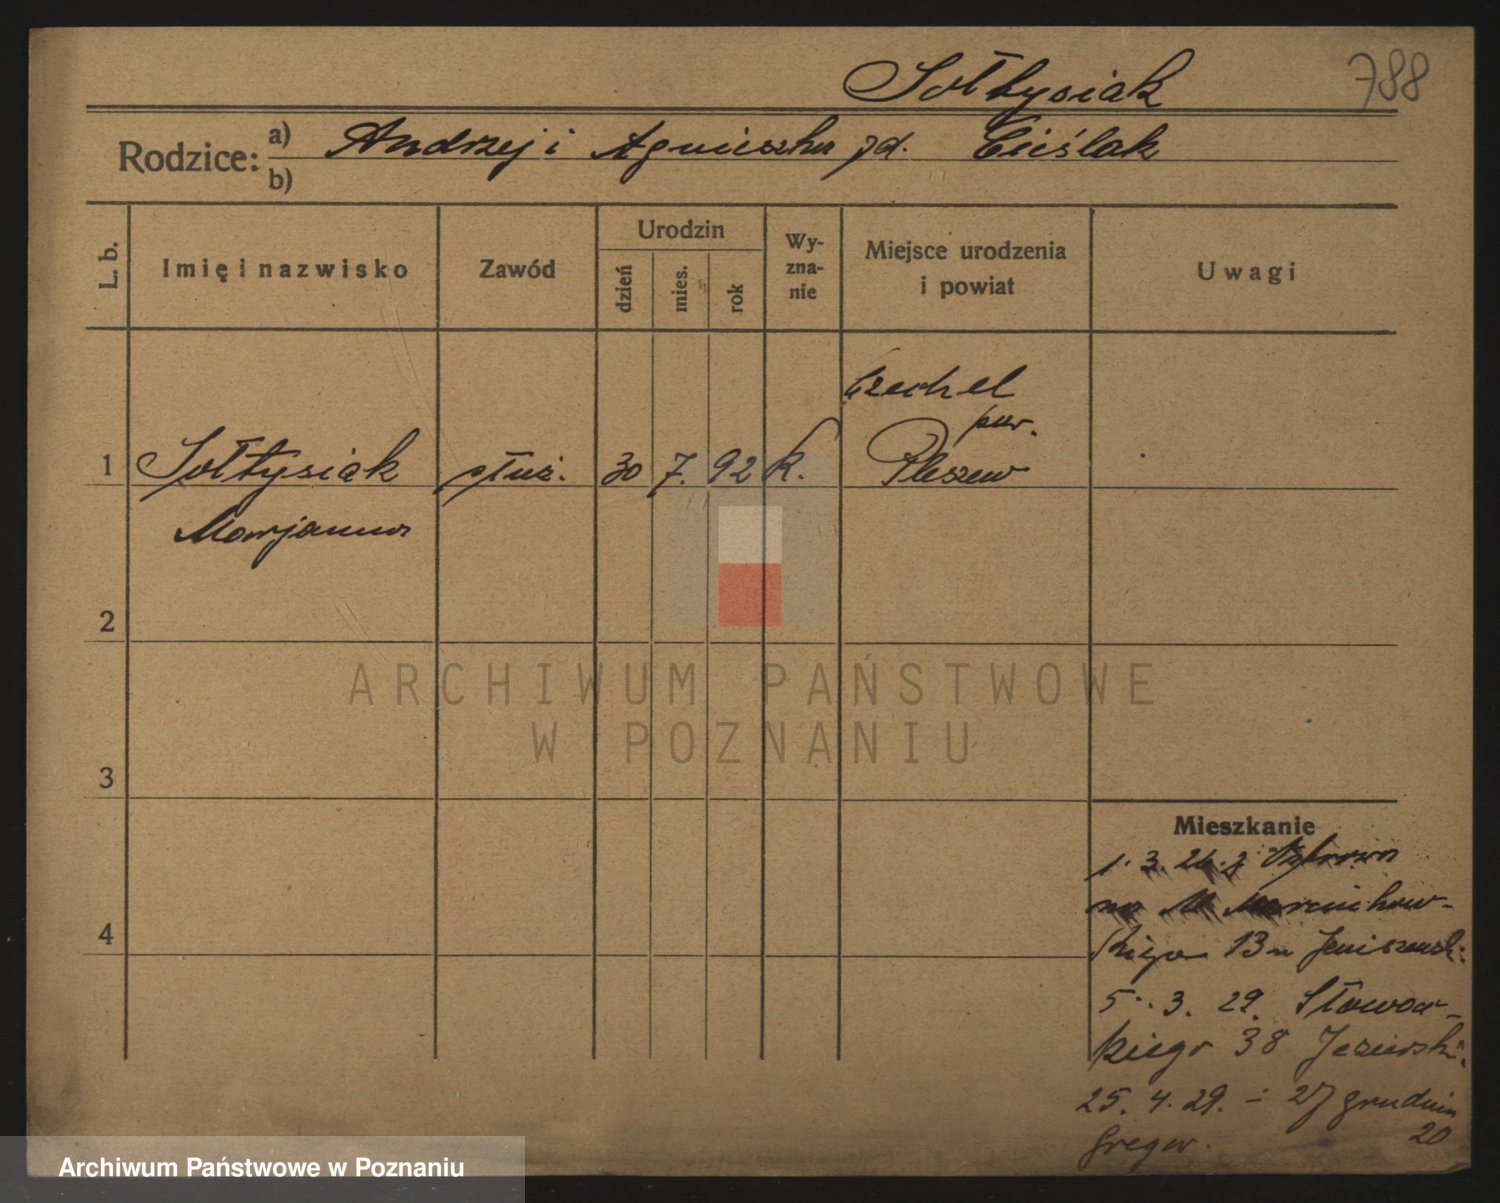 Sołtysiak 788
Rodzice: a) Andrzej i Agnieszka zd. Cieślak
b)
L. b. Imię i nazwisko Zawód Urodzin dzień mies. rok Wy-zna-nie Miejsce urodzenia i powiat Uwagi
Czechel
pow.
1 Sołtysiak służ. 30 7. 92 k. Pleszew
Marjanna
2
3
4
Mieszkanie
1. 3. 26. z
13 u Jeniszewski
5. 3. 29. Słowac-
kiego 38 Jezierski
25. 4. 29. – 27 grudnia
20
ARCHIWUM PAŃSTWOWE
W POZNANIU
Archiwum Państwowe w Poznaniu